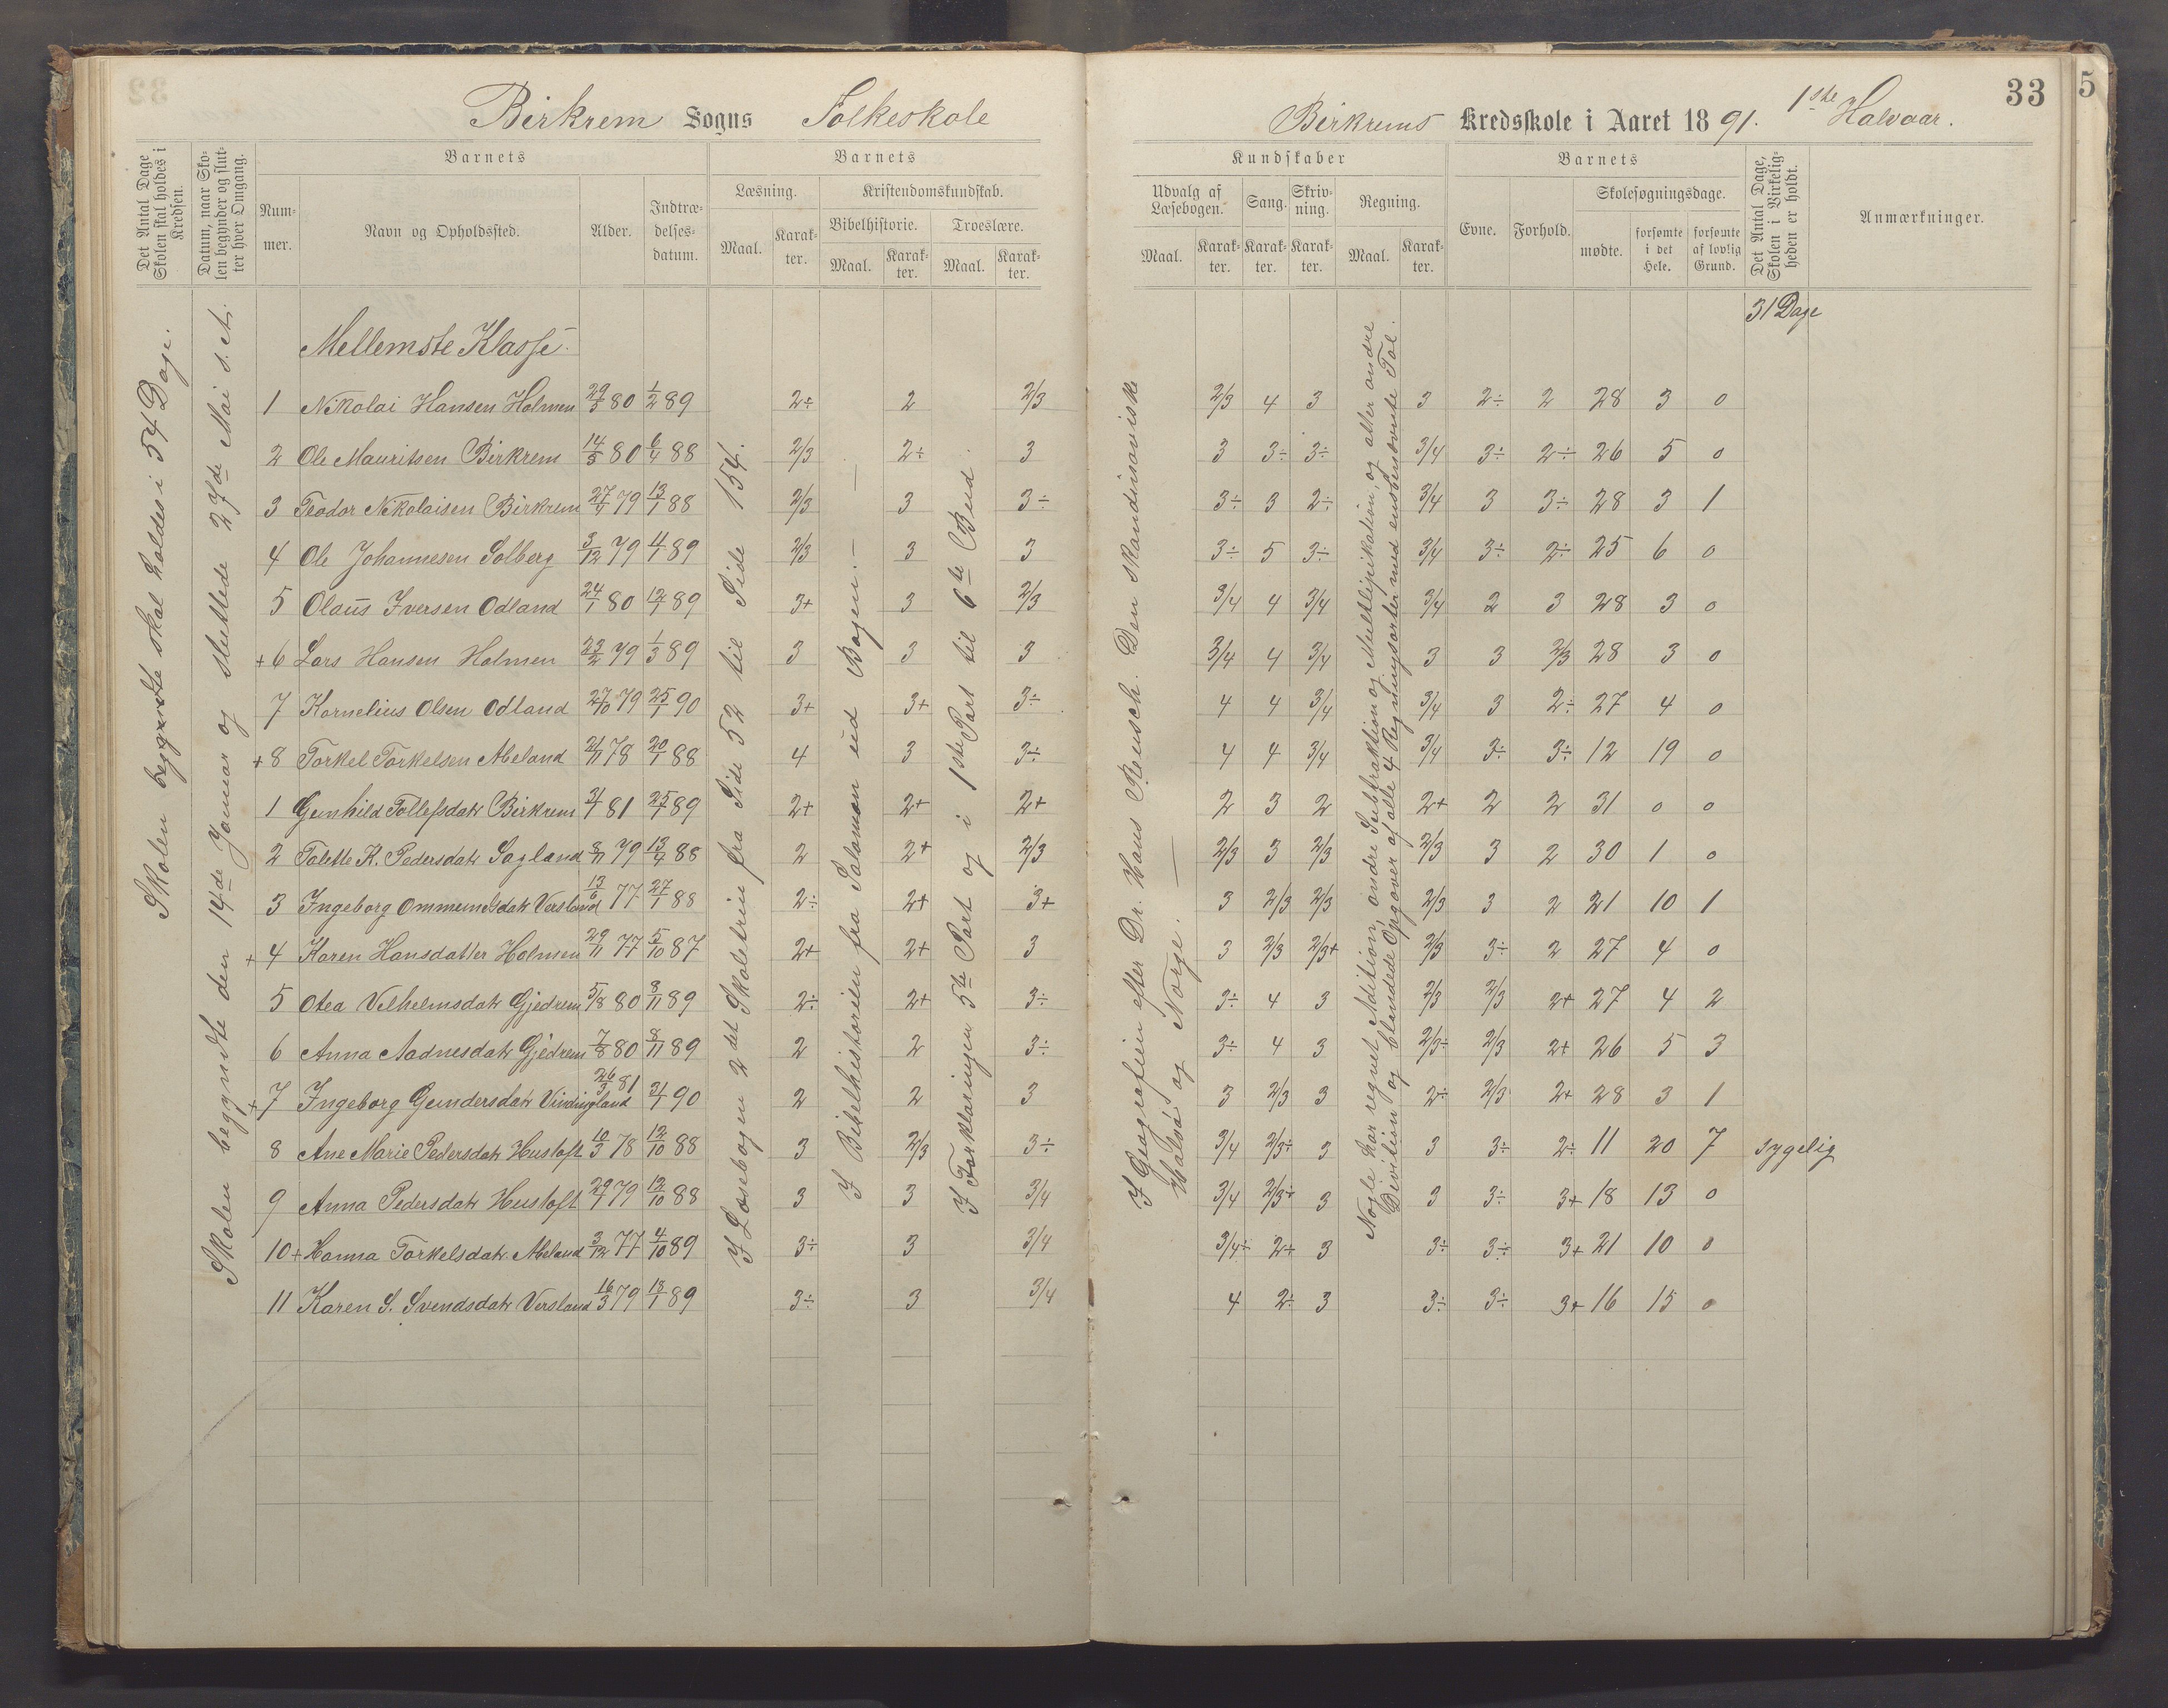 Birkrem Sogns Folkeskole
Birkrems Kredsskole i Aaret 1891. 1ste Halvaar.
33
5
Det Antal Dage Skolen skal holdes i Kredsen.
Datum, naar Skolen begynder og slutter hver Omgang.
Barnets
Nummer.
Navn og Opholdssted.
Alder.
Indtrædelsesdatum.
Barnets
Læsning.
Maal.
Karakter.
Kristendomskundskab.
Bibelhistorie.
Maal.
Karakter.
Troeslære.
Maal.
Karakter.
Kundskaber
Udvalg af Læsebogen.
Maal.
Karakter.
Sang.
Karakter.
Skrivning.
Karakter.
Regning.
Maal.
Karakter.
Barnets
Evne.
Forhold.
Skolesøgningsdage.
mødte.
forsømte i det Hele.
forsømte af lovlig Grund.
Det Antal Dage, Skolen i Virkeligheden er holdt.
Anmærkninger.
31 Dage
Skolen begyndte skal holdes i 54 Dage.
Skolen begyndte den 14de Januar og sluttede 27de Mai s. A.
I Læsebogen 2det Skoletrin fra Side 52 til Side 154.
I Bibelhistorien fra Salomon ud Bogen. —
I Forklaringen 5te Part og i 1ste Part til 6te Bud.
I Geografien efter Dr. Hans Reusch. Den skandinaviske
Halvø og Norge. —
Nogle har regnet Adition, andre Subtraktion og Multiplikation, og atter andre
Division og blandede Opgaver af alle 4 Regningsarter med ensbenævnte Tal.
Mellemste Klasse.
1 Nikolai Hansen Holmen 29/3 80 1/2 89 2÷ 2 2/3 2/3 4 3 3 2÷ 2 28 3 0
2 Ole Mauritsen Birkrem 14/3 80 6/4 88 2/3 2÷ 3 3 3÷ 3÷ 3/4 3÷ 2÷ 26 5 0
3 Teodor Nikolaisen Birkrem 27/4 79 13/1 88 2/3 3 3÷ 3÷ 3 2÷ 3/4 3 3÷ 28 3 1
4 Ole Johannesen Solberg 3/12 79 4/1 89 2/3 3 3 3÷ 5 3÷ 3/4 3÷ 2÷ 25 6 0
5 Olaus Iversen Odland 24/1 80 12/7 89 3+ 3 2/3 3/4 4 3/4 3/4 2 3 28 3 0
+6 Lars Hansen Holmen 23/2 79 1/3 89 3 3 3 3/4 4 3/4 3 3 2/3 28 3 0
7 Kornelius Olsen Odland 27/10 79 25/1 90 3+ 3+ 3÷ 4 4 3/4 3/4 3 2÷ 27 4 0
+8 Torkel Torkelsen Abeland 2/11 78 20/1 88 4 3 3÷ 4 4 3/4 3/4 3÷ 3÷ 12 19 0
1 Gunhild Tollefsdatr Birkrem 3/1 81 25/7 89 2+ 2+ 2+ 2 3 2 2+ 2 2 31 0 0
2 Talette K. Pedersdatr Sagland 8/11 79 13/4 88 2 2+ 2/3 2/3 3 2/3 2/3 3 2 30 1 0
3 Ingeborg Ommundsdatr Versland 13/6 77 27/1 88 2÷ 2+ 3+ 3 2/3 2/3 2/3 3 2 21 10 1
+4 Karen Hansdatter Holmen 29/11 77 5/10 87 2+ 2+ 3 3 2/3 2/3+ 2/3 3÷ 2 27 4 0
5 Otea Velhelmsdatr Gjedrem 5/8 80 8/11 89 2÷ 2+ 3÷ 3÷ 4 3 2/3 2/3 2+ 27 4 2
6 Anna Aadnesdatr Gjedrem 7/8 80 8/11 89 2 2 3÷ 3÷ 4 3 2/3÷ 2/3 2+ 26 5 3
+7 Ingeborg Gundersdatr Vindingland 26/3 81 2/1 90 2 2 3 3 2/3 3 2÷ 2/3 2+ 28 3 1
8 Ane Marie Pedersdatr Hustoft 10/3 78 12/10 88 3 2/3 3÷ 3/4 2/3÷ 3 3 3÷ 2÷ 11 20 7 sygelig
9 Anna Pedersdatr Hustoft 29/7 79 12/10 88 3 3 3/4 3/4 2/3÷ 3 3 3÷ 3+ 18 13 0
10+ Hanna Torkelsdatr. Abeland 3/12 77 4/10 89 3÷ 3 3/4 3/4÷ 2+ 3 3÷ 3÷ 3+ 21 10 0
11 Karen S. Svendsdatr Versland 16/3 79 18/1 89 3÷ 3 3/4 4 2÷ 3 3÷ 3÷ 3+ 16 15 0